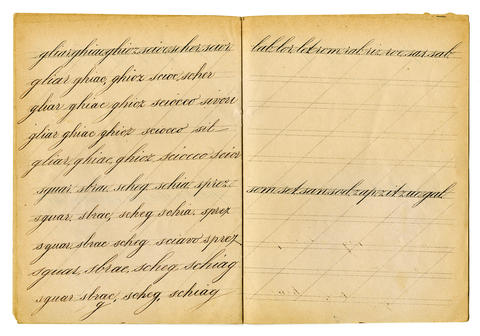 gliar ghiac ghioz scioc scher scior
gliar ghiac, ghioz scioc, scher
gliar ghiac ghioz sciocco sivori
gliar ghiac ghioz sciocco sil
gliar, ghiac, ghioz sciocco scior
squar, sbrac, scheg, schia, sprez.
squar, sbrac, scheg, schia, sprez
squar, sbrac scheg sciavo sprez
squar, sbrac, scheg, schiag
squar sbrac, scheg, schiag
lab lor let rom ral riz roc sar sab
sem set san sod zap zit zuc gal